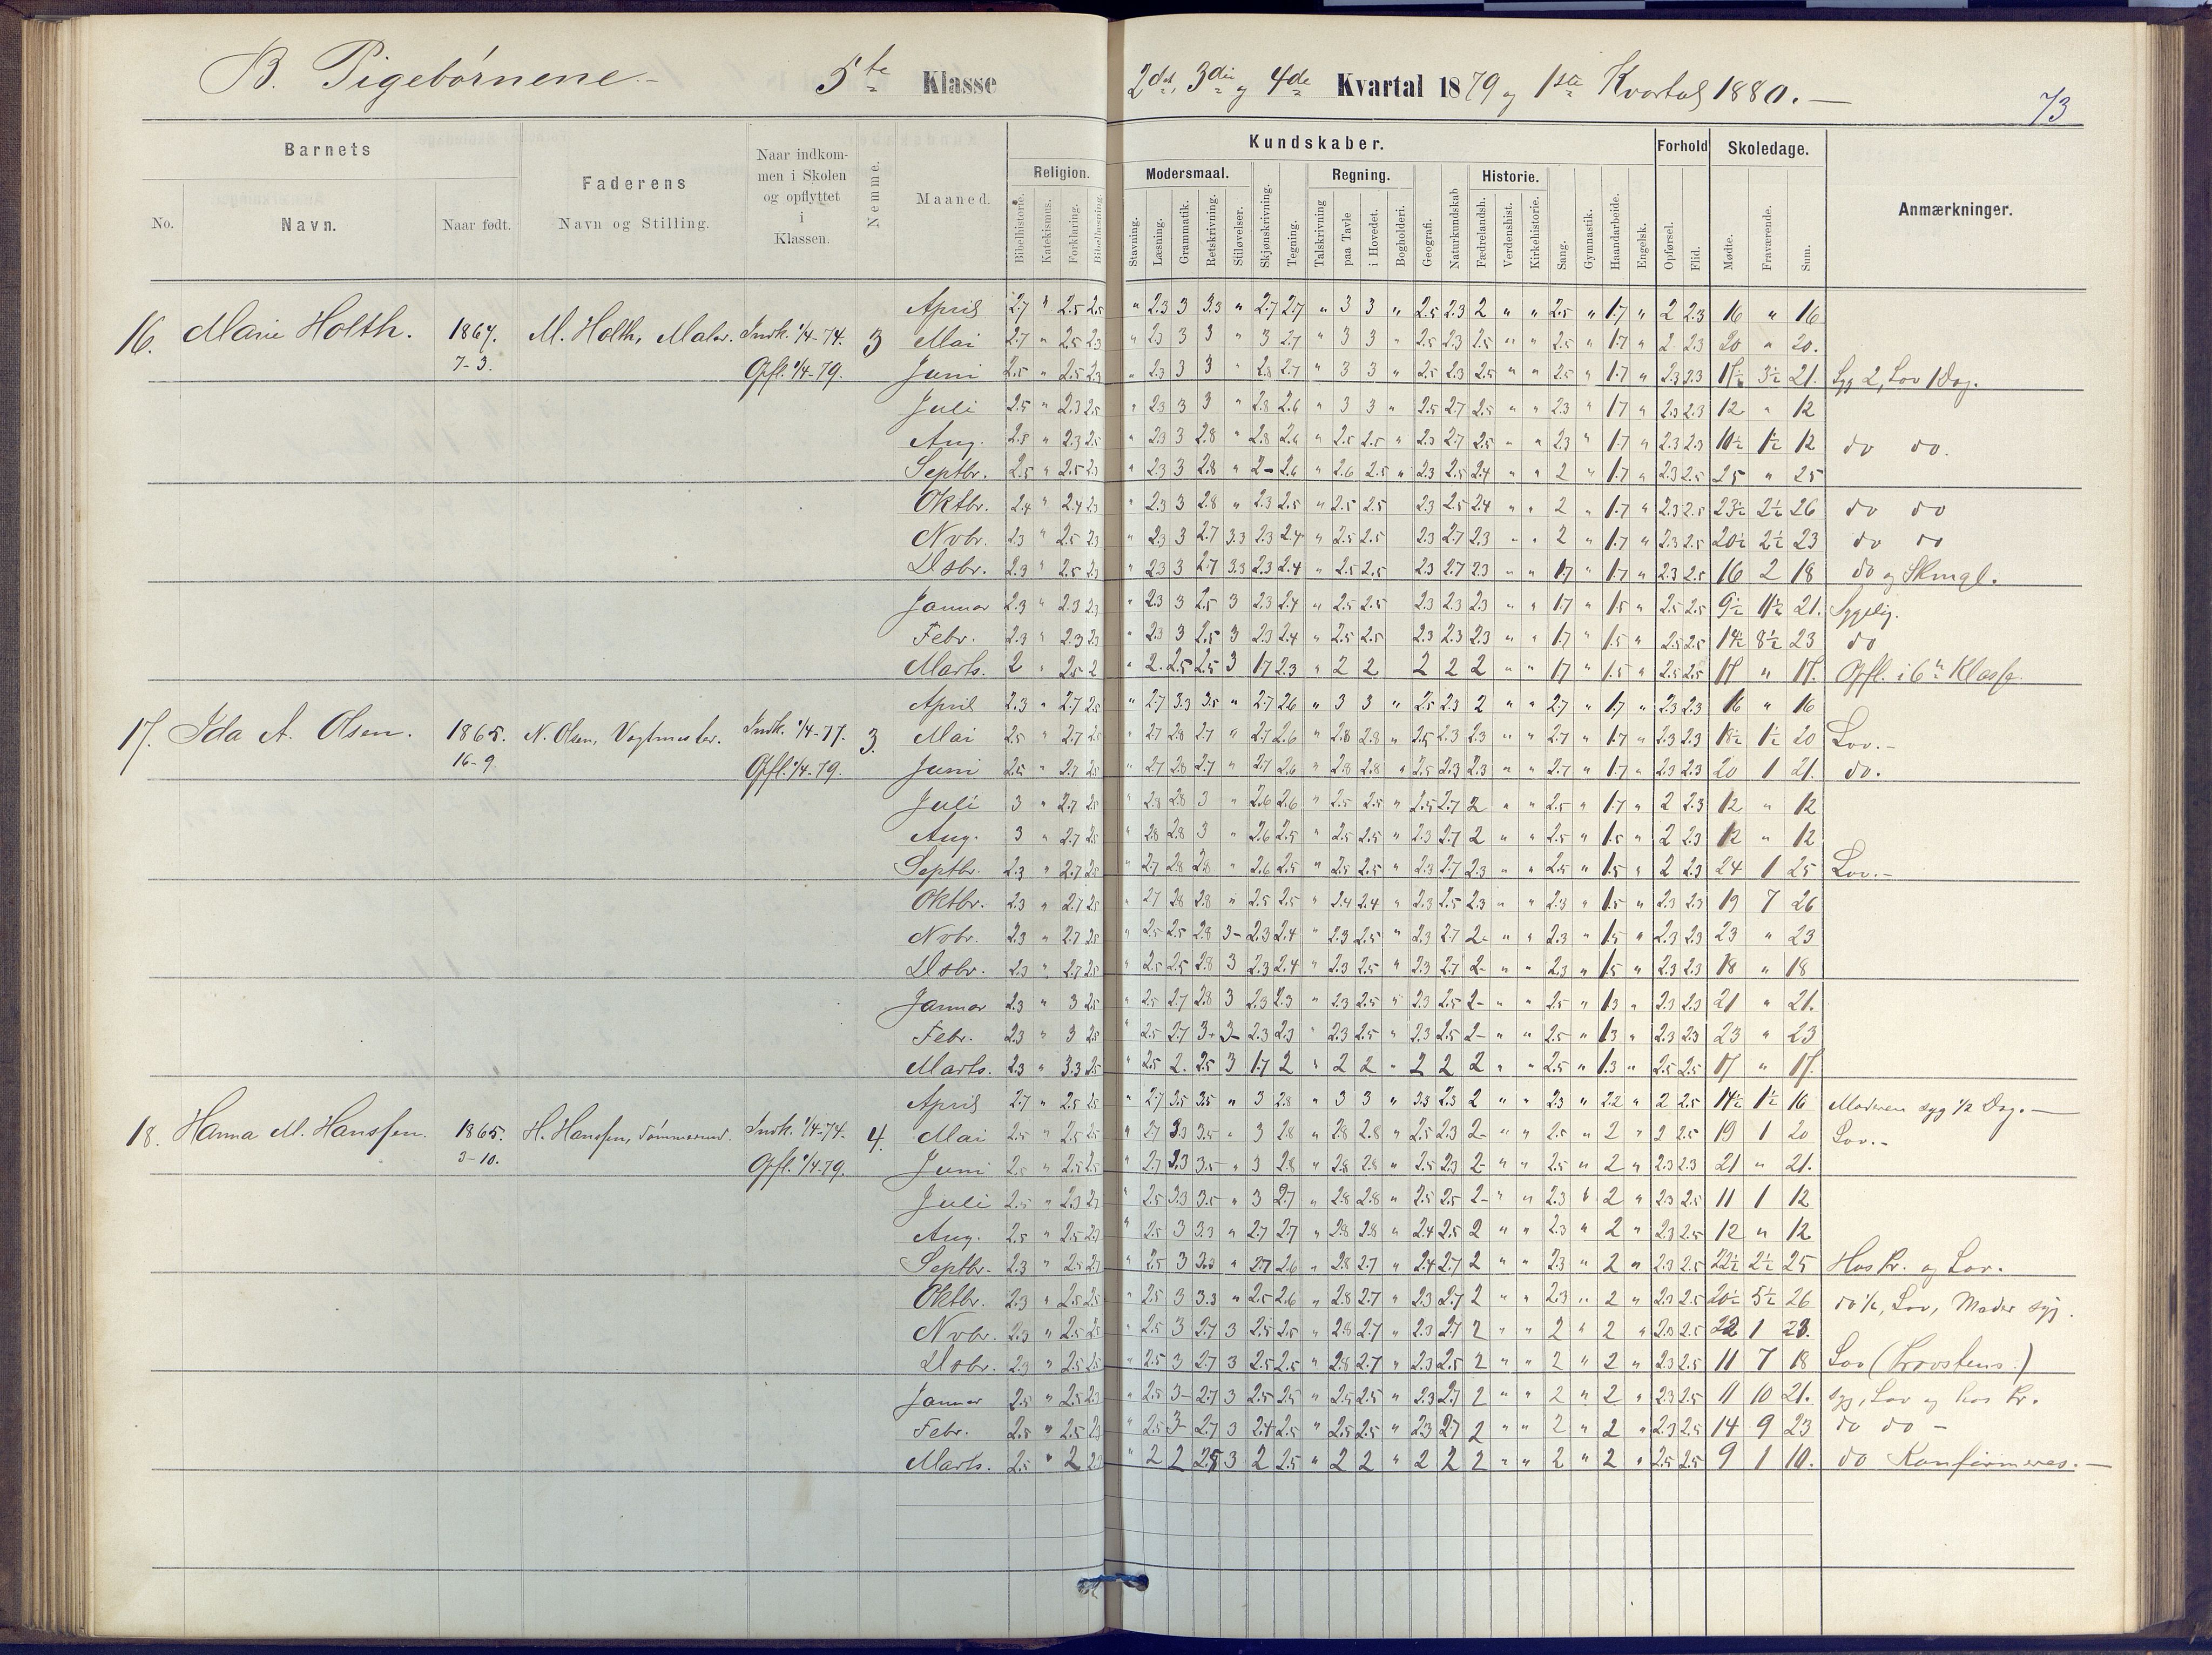 B. Pigebörnene.- 5te Klasse
2det, 3die og 4de Kvartal 1879 og 1ste Kvartal 1880. —
73
Barnets
No. Navn. Naar født.
Faderens
Navn og Stilling.
Naar indkom-
men i Skolen
og opflyttet
i
Klassen.
Nemme.
Maaned.
Kundskaber.
Religion.
Bibelhistorie. Katekismus. Forklaring. Bibellæsning.
Modersmaal.
Stavning. Læsning. Grammatik. Retskrivning. Stiløvelser.
Skjønskrivning. Tegning.
Regning.
Talskrivning paa Tavle i Hovedet. Bogholderi.
Geografi. Naturkundskab
Historie.
Fædrelandsh. Verdenshist. Kirkehistorie.
Sang. Gymnastik. Haandarbeide. Engelsk.
Forhold
Opførsel. Flid.
Skoledage.
Mødte. Fraværende. Sum.
Anmærkninger.
16. Marie Holth. 1867. 7-3. M. Holth, Maler. Indk. 1/4-74. Opfl. 1/4-79. 3
April 2.7 " 2.5 2.5 " 2.3 3 3.3 " 2.7 2.7 " 3 3 " 2.5 2.3 2 " " 2.5 " 1.7 " 2 2.3 16 " 16
Mai 2.7 " 2.5 2.3 " 2.3 3 3 " 3 2.7 " 3 3 " 2.5 2.3 2.5 " " 2.5 " 1.7 " 2 2.3 20 " 20.
Juni 2.5 " 2.5 2.3 " 2.3 3 3 " 2.8 2.7 " 3 3 " 2.5 2.3 2.5 " " 2.5 " 1.7 " 2.3 2.3 17½ 3½ 21. Syg 2, Lov 1 Dag.
Juli 2.5 " 2.3 2.5 " 2.3 3 3 " 2.8 2.6 " 3 3 " 2.5 2.7 2.5 " " 2.3 " 1.7 " 2.3 2.3 12 " 12
Aug. 2.5 " 2.3 2.5 " 2.3 3 2.8 " 2.8 2.6 " 2.5 2.5 " 2.3 2.7 2.5 " " 2.3 " 1.7 " 2.3 2.3 10½ 1½ 12 do do.
Septbr. 2.5 " 2.5 2.3 " 2.3 3 2.8 " 2- 2.6 " 2.6 2.5 " 2.3 2.5 2.4 " " 2 " 1.7 " 2.3 2.5 25 " 25
Oktbr. 2.4 " 2.4 2.3 " 2.3 3 2.8 " 2.3 2.5 " 2.5 2.5 2.3 2.5 2.4 " " 2 " 1.7 " 2.3 2.5 23½ 2½ 26 do do
Nvbr. 2.3 " 2.5 2.3 " 2.3 3 2.7 3.3 2.3 2.4 " 2.5 2.5 2.3 2.7 2.3 " " 2 " 1.7 " 2.3 2.5 20½ 2½ 23 do do
Dsbr. 2.3 " 2.5 2.3 " 2.3 3 2.7 3.3 2.3 2.4 " 2.5 2.5 2.3 2.7 2.3 " " 1.7 " 1.7 " 2.3 2.5 16 2 18 do og Skmgl.
Januar 2.3 " 2.3 2.3 " 2.3 3 2.5 3 2.3 2.4 " 2.5 2.5 2.3 2.3 2.3 " " 1.7 " 1.5 " 2.5 2.5 9½ 11½ 21. Sygelig.
Febr. 2.3 " 2.3 2.3 " 2.3 3 2.5 3 2.3 2.4 " 2.5 2.5 2.3 2.3 2.3 " " 1.7 " 1.5 " 2.5 2.5 14½ 8½ 23 do
Marts. 2 " 2.5 2 " 2. 2.5 2.5 3 1.7 2.3 " 2 2 2 2 2 " " 1.7 " 1.5 " 2.5 2.5 17 " 17. Opfl. i 6te Klasse.
17. Ida A. Olsen. 1865. 16-9. N. Olsen, Vagtmester. Indk. 1/4-77. Opfl. 1/4-79. 3.
April 2.3 " 2.7 2.5 " 2.7 3.3 3.5 " 2.7 2.6 " 3 3 " 2.5 2.3 2 " " 2.7 " 1.7 " 2.3 2.3 16 " 16
Mai 2.5 " 2.7 2.5 " 2.7 2.8 2.7 " 2.7 2.6 " 2.8 2.8 " 2.5 2.3 2.3 " " 2.7 " 1.7 " 2.3 2.3 18½ 1½ 20 Lov.-
Juni 2.5 " 2.7 2.5 " 2.7 2.8 2.7 " 2.7 2.6 " 2.8 2.8 " 2.5 2.3 2.3 " " 2.7 " 1.7 " 2.3 2.3 20 1 21. do.
Juli 3 " 2.7 2.5 " 2.8 2.8 3 " 2.6 2.6 " 2.5 2.5 " 2.5 2.7 2 " " 2.5 " 1.7 " 2 2.3 12 " 12
Aug. 3 " 2.7 2.5 " 2.8 2.8 3 " 2.6 2.5 " 2.5 2.5 " 2.3 2.7 2 " " 2.5 " 1.5 " 2 2.3 12 " 12
Septbr. 2.3 " 2.7 2.5 " 2.7 2.8 2.8 " 2.6 2.5 " 2.5 2.5 " 2.3 2.7 2.3 " " 2.5 " 1.5 " 2 2.3 24 1 25 Lov.-
Oktbr. 2.3 " 2.7 2.5 " 2.7 2.8 2.8 " 2.5 2.5 " 2.4 2.4 " 2.3 2.5 2.3 " " 2.3 " 1.5 " 2.3 2.3 19 7 26
Nvbr. 2.3 " 2.7 2.5 " 2.5 2.5 2.8 3- 2.3 2.4 " 2.3 2.5 " 2.3 2.7 2- " " 2.3 " 1.5 " 2.3 2.3 23 " 23
Dsbr. 2.3 " 2.7 2.5 " 2.5 2.5 2.8 3 2.3 2.4 " 2.3 2.5 " 2.3 2.7 2- " " 2.3 " 1.5 " 2.3 2.3 18 " 18
Januar 2.3 " 3 2.5 " 2.5 2.7 2.8 3 2.3 2.3 " 2.3 2.5 " 2.3 2.5 2- " " 2.5 " 1.3 " 2.3 2.3 21 " 21.
Febr. 2.3 " 3 2.5 " 2.5 2.7 3+ 3- 2.3 2.3 " 2.3 2.5 " 2.3 2.5 2- " " 2.5 " 1.3 " 2.3 2.3 23 " 23
Marts. 2.3 " 3.3 2.5 " 2.5 2. 2.5 3 1.7 2 " 2 2 " 2 2 2 " " 2.5 " 1.3 " 2.5 2.5 17 " 17.
18. Hanna M. Hanssen. 1865. 3-10. H. Hanssen, Tömmermd. Indk. 1/4-74. Opfl. 1/4-79. 4.
April 2.7 " 2.5 2.5 " 2.7 3.5 3.5 " 3 2.8 " 3 3 " 3.3 2.3 2 " " 2.3 " 2.2 " 2 2.5 14½ 1½ 16 Moderen syg 1/2 Dag.—
Mai 2.5 " 2.5 2.5 " 2.7 3.3 3.5 " 3 2.8 " 2.8 2.8 " 2.5 2.3 2- " " 2.5 " 2 " 2 2.5 19 1 20 Lov.-
Juni 2.5 " 2.5 2.5 " 2.7 3.3 3.5 " 3 2.8 " 2.8 2.8 " 2.5 2.3 2- " " 2.5 " 2 " 2.3 2.3 21 " 21.
Juli 2.5 " 2.3 2.3 " 2.5 3.3 3.5 " 3 2.7 " 2.8 2.8 " 2.5 2.5 2- " " 2.3 " 2 " 2.3 2.5 11 1 12
Aug. 2.5 " 2.5 2.3 " 2.5 3 3.3 " 2.7 2.7 " 2.8 2.8 " 2.4 2.5 2 " " 2.3 " 2 " 2.3 2.5 12 " 12
Septbr. 2.3 " 2.5 2.3 " 2.5 3 3.3 " 2.7 2.6 " 2.8 2.7 " 2.4 2.7 2 " " 2.3 " 2 " 2.3 2.5 22½ 2½ 25 Hos Pr. og Lov.
Oktbr. 2.3 " 2.5 2.5 " 2.5 3 3.3 " 2.5 2.6 " 2.8 2.7 " 2.3 2.7 2 " " 2.3 " 2 " 2.3 2.5 20½ 5½ 26 do ½, Lov, Moder syg.
Nvbr. 2.3 " 2.5 2.5 " 2.5 3 2.7 3 2.5 2.5 " 2.8 2.7 " 2.3 2.7 2 " " 2 " 2 " 2.3 2.5 22 1 23.
Dsbr. 2.3 " 2.5 2.5 " 2.5 3 2.7 3 2.5 2.5 " 2.8 2.7 " 2.3 2.5 2 " " 2 " 2 " 2.3 2.5 11 7 18 Lov (Provstens:)
Januar 2.5 " 2.5 2.3 " 2.5 3- 2.7 3 2.5 2.5 " 2.5 2.5 " 2.3 2.7 2 " " 2 " 2 " 2.3 2.5 11 10 21. syg, Lov og hos Pr.
Febr. 2.5 " 2.5 2.3 " 2.5 3- 2.7 3 2.4 2.5 " 2.5 2.5 " 2.3 2.7 2 " " 2 " 2 " 2.3 2.5 14 9 23 do do -
Marts. 2.5 " 2 2.3 " 2 2 2.5 3 2 2.5 " 2 2 " 2 2 2 " " 2 " 2 " 2.5 2.5 9 1 10. do Konfirmeres.—